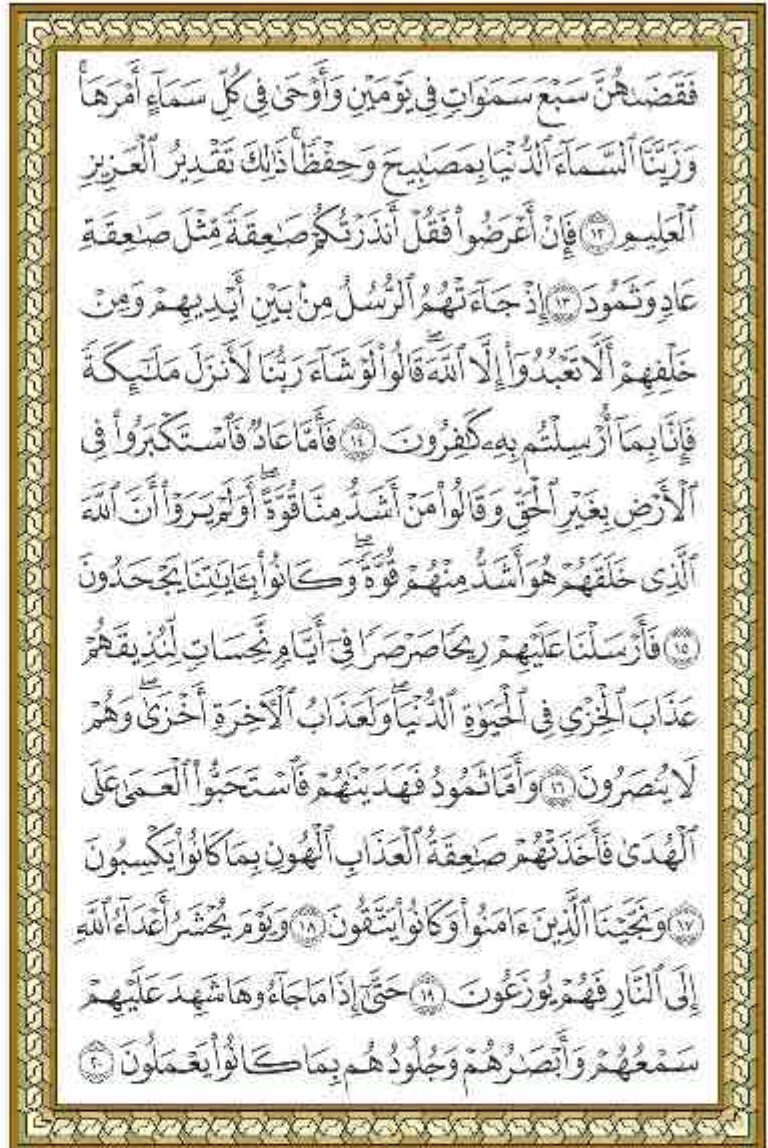 فَقَضَىٰهُنَّ سَبْعَ سَمَٰوَاتٍ فِى يَوْمَيْنِ وَأَوْحَىٰ فِى كُلِّ سَمَآءٍ أَمْرَهَا ۚ
وَزَيَّنَّا ٱلسَّمَآءَ ٱلدُّنْيَا بِمَصَٰبِيحَ وَحِفْظًا ۚ ذَٰلِكَ تَقْدِيرُ ٱلْعَزِيزِ
ٱلْعَلِيمِ ١٢ فَإِنْ أَعْرَضُوا۟ فَقُلْ أَنذَرْتُكُمْ صَٰعِقَةً مِّثْلَ صَٰعِقَةِ
عَادٍ وَثَمُودَ ١٣ إِذْ جَآءَتْهُمُ ٱلرُّسُلُ مِنۢ بَيْنِ أَيْدِيهِمْ وَمِنْ
خَلْفِهِمْ أَلَّا تَعْبُدُوٓا۟ إِلَّا ٱللَّهَ ۖ قَالُوا۟ لَوْ شَآءَ رَبُّنَا لَأَنزَلَ مَلَٰٓئِكَةً
فَإِنَّا بِمَآ أُرْسِلْتُم بِهِۦ كَٰفِرُونَ ١٤ فَأَمَّا عَادٌ فَٱسْتَكْبَرُوا۟ فِى
ٱلْأَرْضِ بِغَيْرِ ٱلْحَقِّ وَقَالُوا۟ مَنْ أَشَدُّ مِنَّا قُوَّةً ۖ أَوَلَمْ يَرَوْا۟ أَنَّ ٱللَّهَ
ٱلَّذِى خَلَقَهُمْ هُوَ أَشَدُّ مِنْهُمْ قُوَّةً ۖ وَكَانُوا۟ بِـَٔايَٰتِنَا يَجْحَدُونَ
١٥ فَأَرْسَلْنَا عَلَيْهِمْ رِيحًا صَرْصَرًا فِىٓ أَيَّامٍ نَّحِسَاتٍ لِّنُذِيقَهُمْ
عَذَابَ ٱلْخِزْىِ فِى ٱلْحَيَوٰةِ ٱلدُّنْيَا ۖ وَلَعَذَابُ ٱلْءَاخِرَةِ أَخْزَىٰ ۖ وَهُمْ
لَا يُنصَرُونَ ١٦ وَأَمَّا ثَمُودُ فَهَدَيْنَٰهُمْ فَٱسْتَحَبُّوا۟ ٱلْعَمَىٰ عَلَى
ٱلْهُدَىٰ فَأَخَذَتْهُمْ صَٰعِقَةُ ٱلْعَذَابِ ٱلْهُونِ بِمَا كَانُوا۟ يَكْسِبُونَ
١٧ وَنَجَّيْنَا ٱلَّذِينَ ءَامَنُوا۟ وَكَانُوا۟ يَتَّقُونَ ١٨ وَيَوْمَ يُحْشَرُ أَعْدَآءُ ٱللَّهِ
إِلَى ٱلنَّارِ فَهُمْ يُوزَعُونَ ١٩ حَتَّىٰٓ إِذَا مَا جَآءُوهَا شَهِدَ عَلَيْهِمْ
سَمْعُهُمْ وَأَبْصَٰرُهُمْ وَجُلُودُهُم بِمَا كَانُوا۟ يَعْمَلُونَ ٢٠